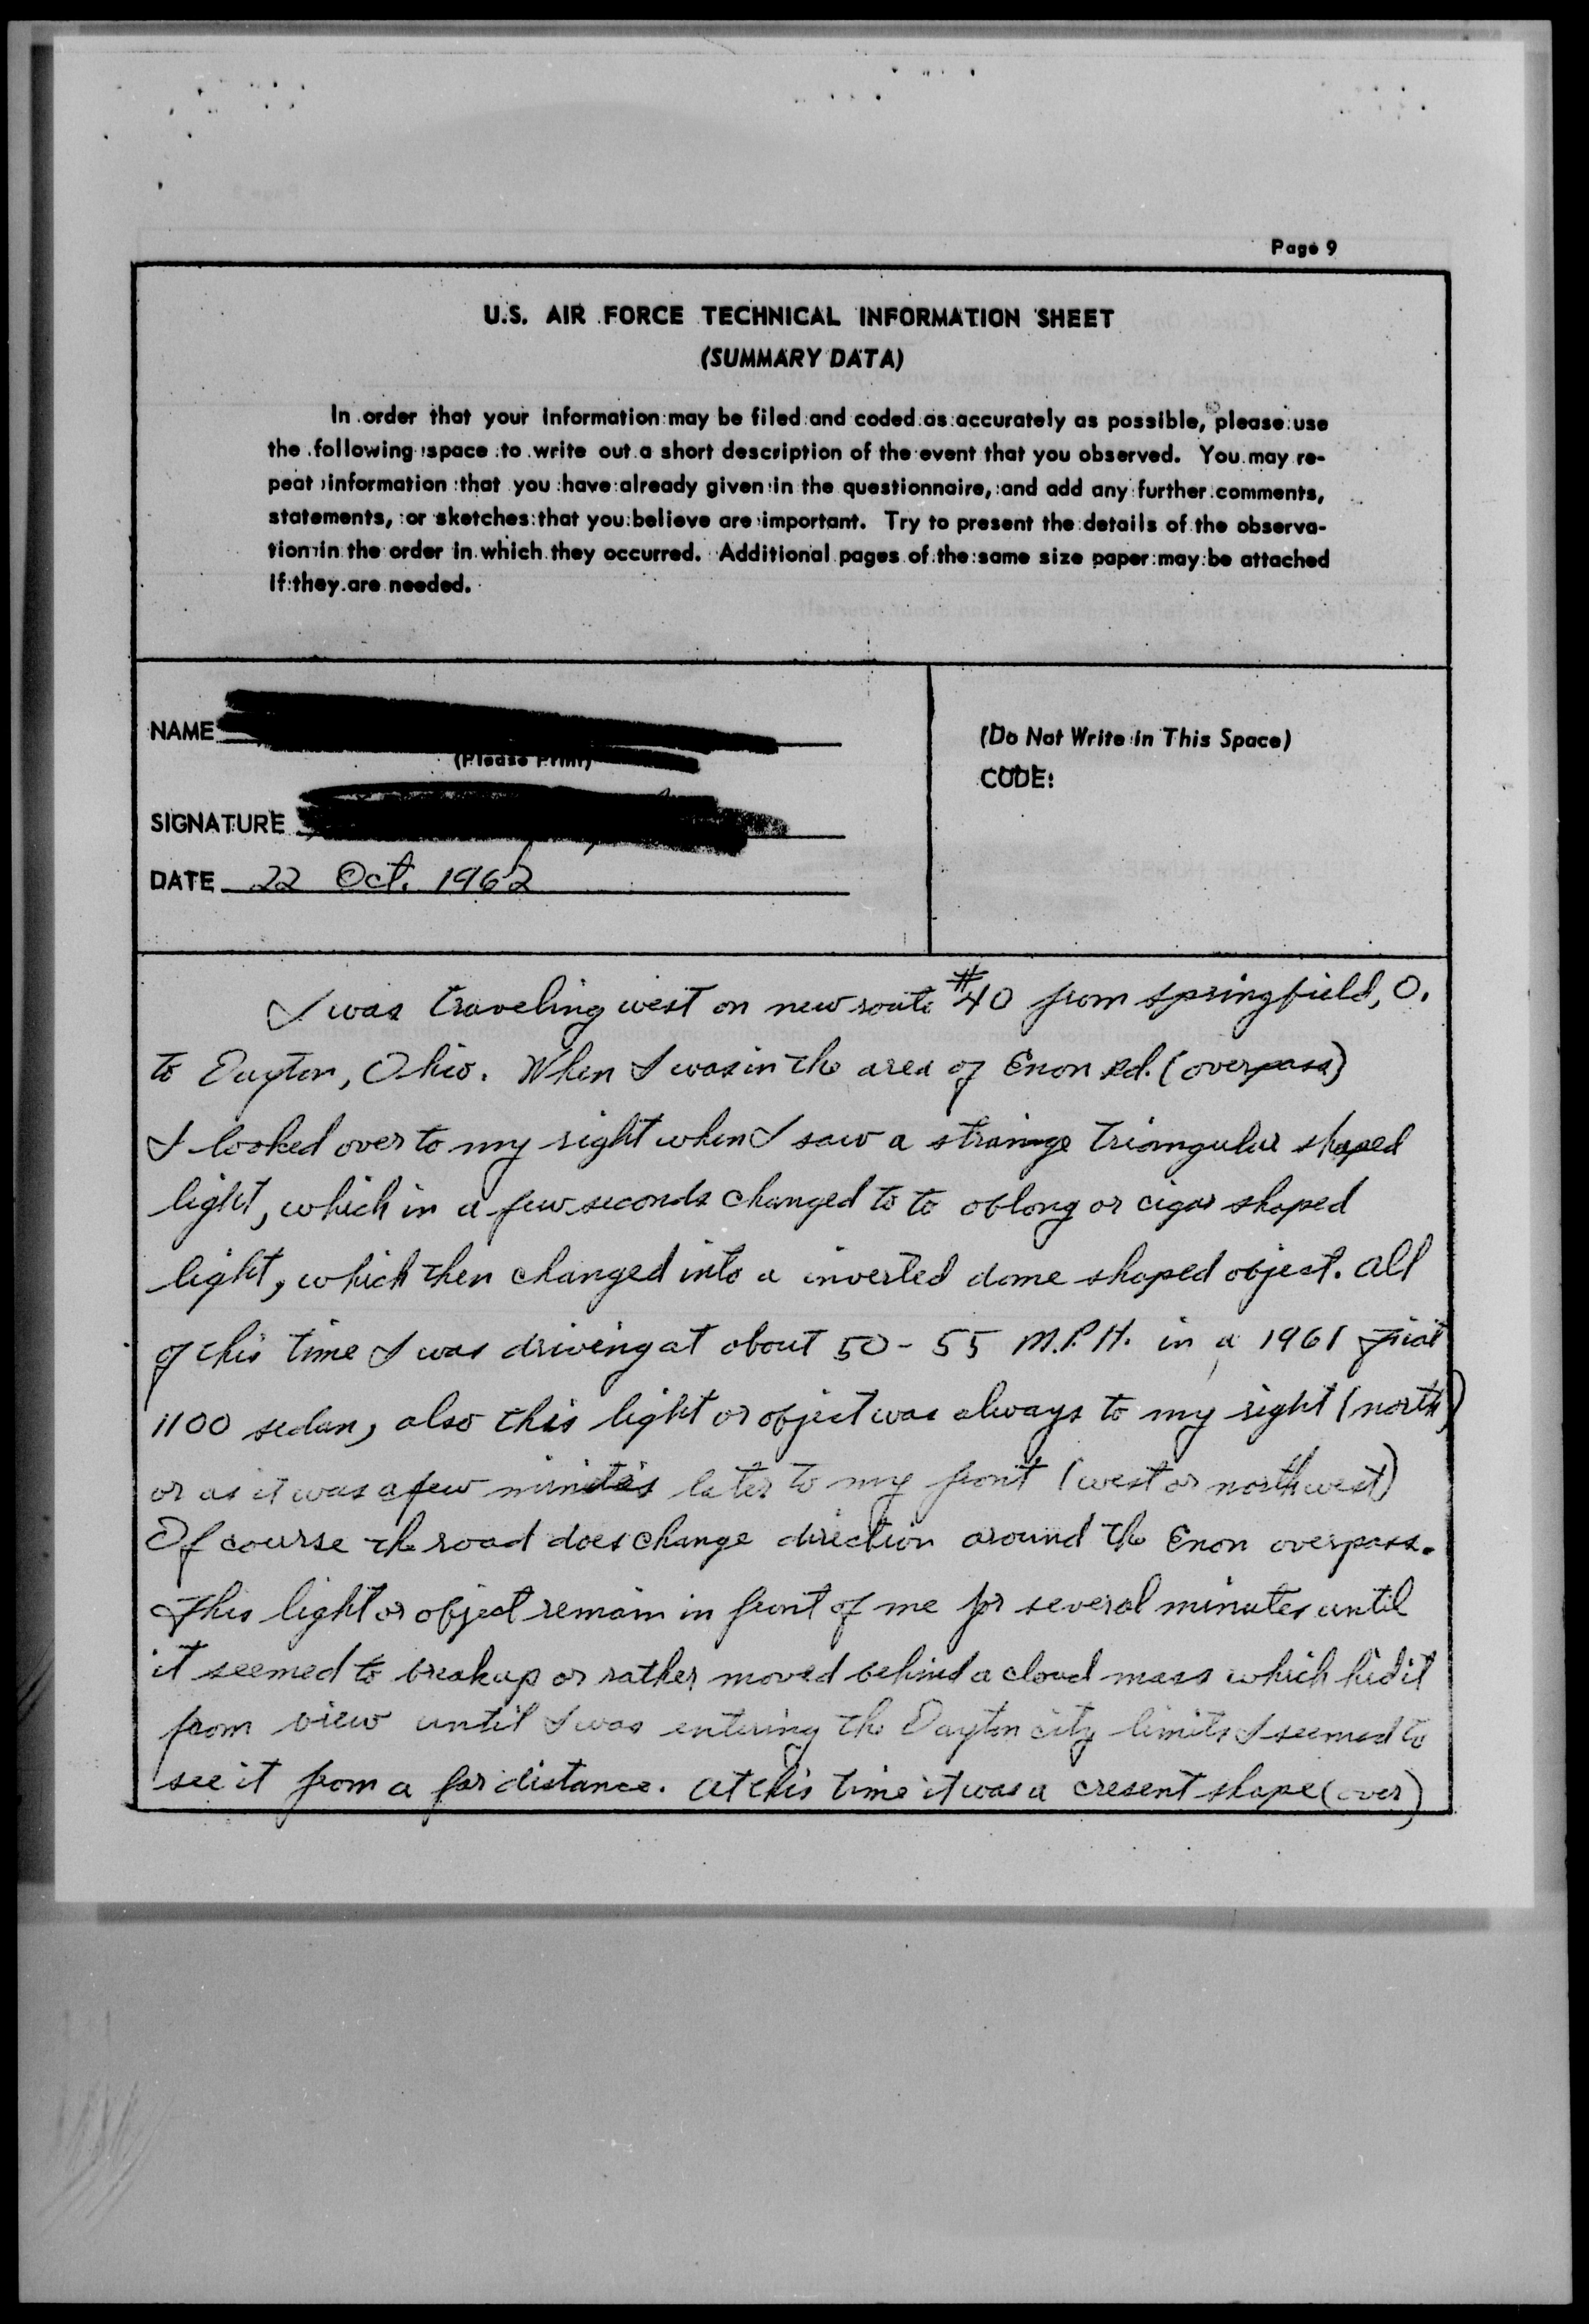 Page 9
U.S. AIR FORCE TECHNICAL INFORMATION SHEET
(SUMMARY DATA)
In order that your information may be filed and coded as accurately as possible, please use
the following space to write out a short description of the event that you observed. You may re-
peat information that you have already given in the questionnaire, and add any further comments,
statements, or sketches that you believe are important. Try to present the details of the observa-
tion in the order in which they occurred. Additional pages of the same size paper may be attached
if they are needed.
NAME
(Please Print)
SIGNATURE
DATE 22 Oct. 1962
(Do Not Write in This Space)
CODE:
I was traveling west on new route #40 from Springfield, O.
to Dayton, Ohio. When I was in the area of Enon Rd. (overpass)
I looked over to my right when I saw a strange triangular shaped
light, which in a few seconds changed to to oblong or cigar shaped
light, which then changed into a inverted dome shaped object. All
of this time I was driving at about 50 - 55 M.P.H. in a 1961 Fiat
1100 sedan, also this light or object was always to my right (north)
or as it was a few minutes later to my front (west or northwest)
Of course the road does change direction around the Enon overpass.
This light or object remain in front of me for several minutes until
it seemed to breakup or rather moved behind a cloud mass which hid it
from view until I was entering the Dayton city limits I seemed to
see it from a far distance. At this time it was a cresent shape (over)